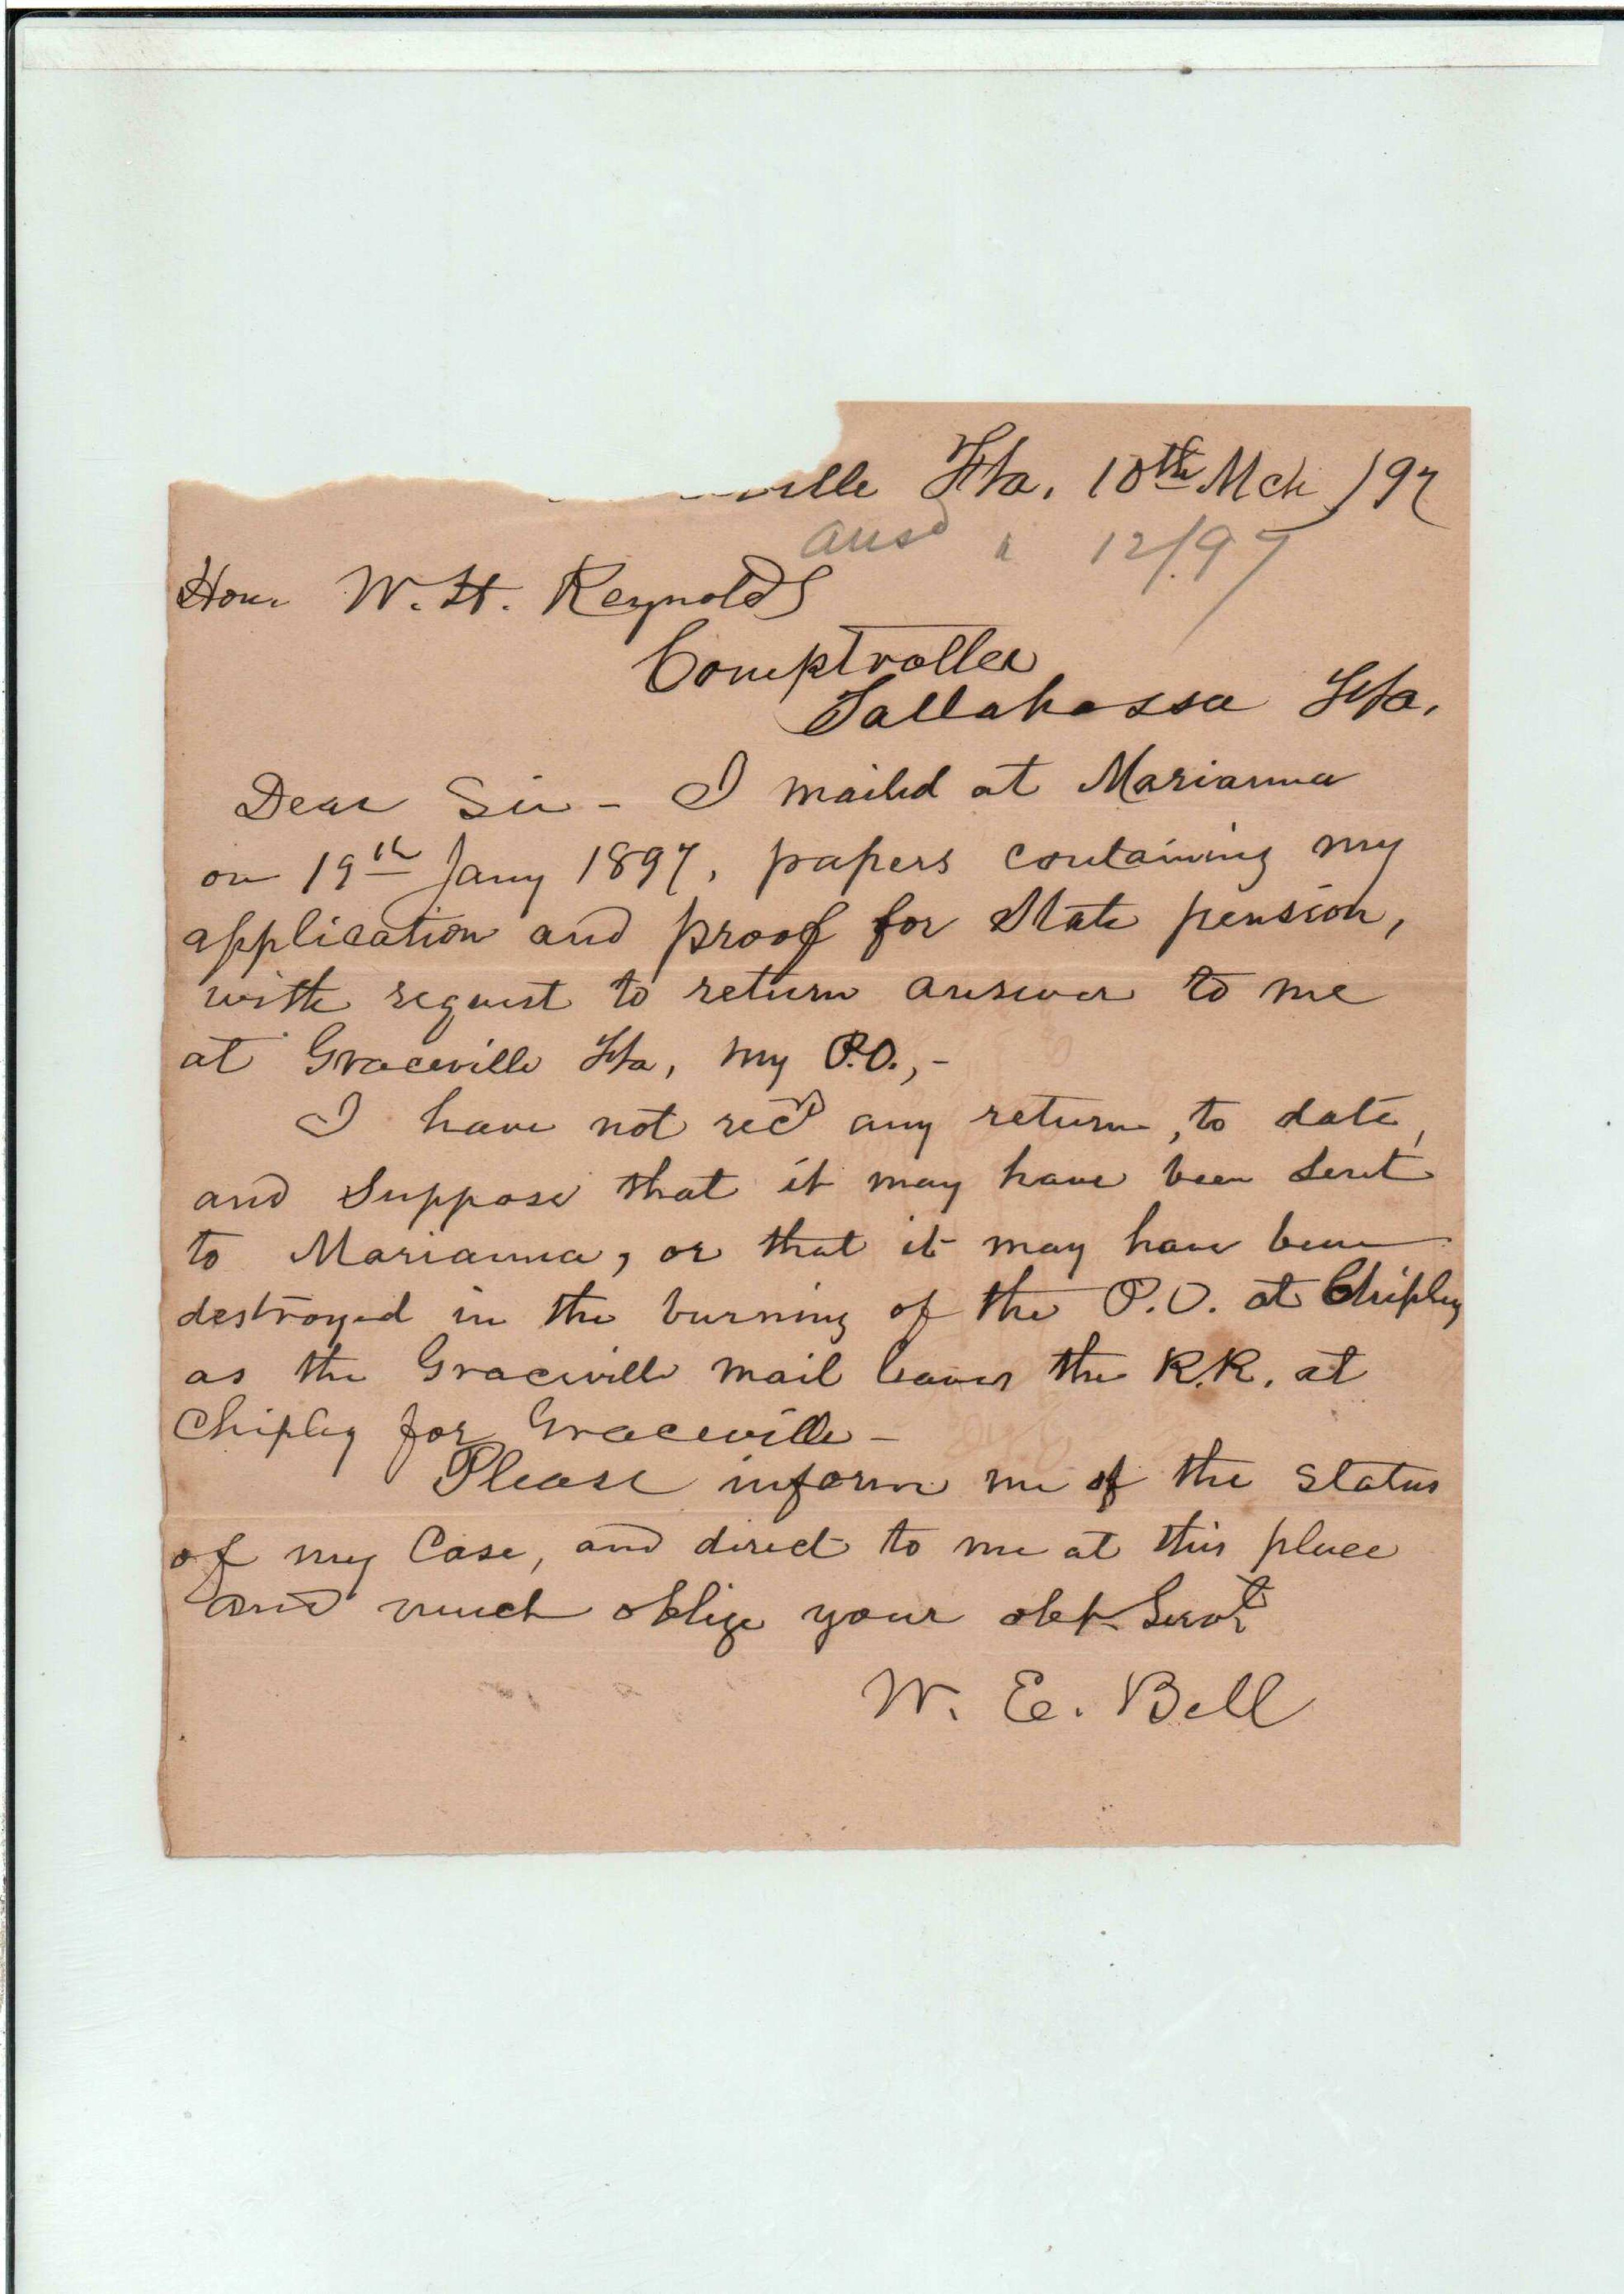 ville Fla, 10th Mch /97
ansd " 12/97
Hon. W. H. Reynolds
Comptroller
Tallahassa Fla,
Dear Sir - I mailed at Marianna
on 19th Jany 1897, papers containing my
application and proof for State pension,
with request to return answer to me
at Graceville Fla, my P.O., -
I have not recd any return, to date,
and Suppose that it may have been Sent
to Marianna, or that it may have been
destroyed in the burning of the P.O. at Chipley
as the Graceville mail leaves the R.R. at
Chipley for Graceville -
Please inform me of the Status
of my Case, and direct to me at this place
and much oblige your obt Servt
W. E. Bell